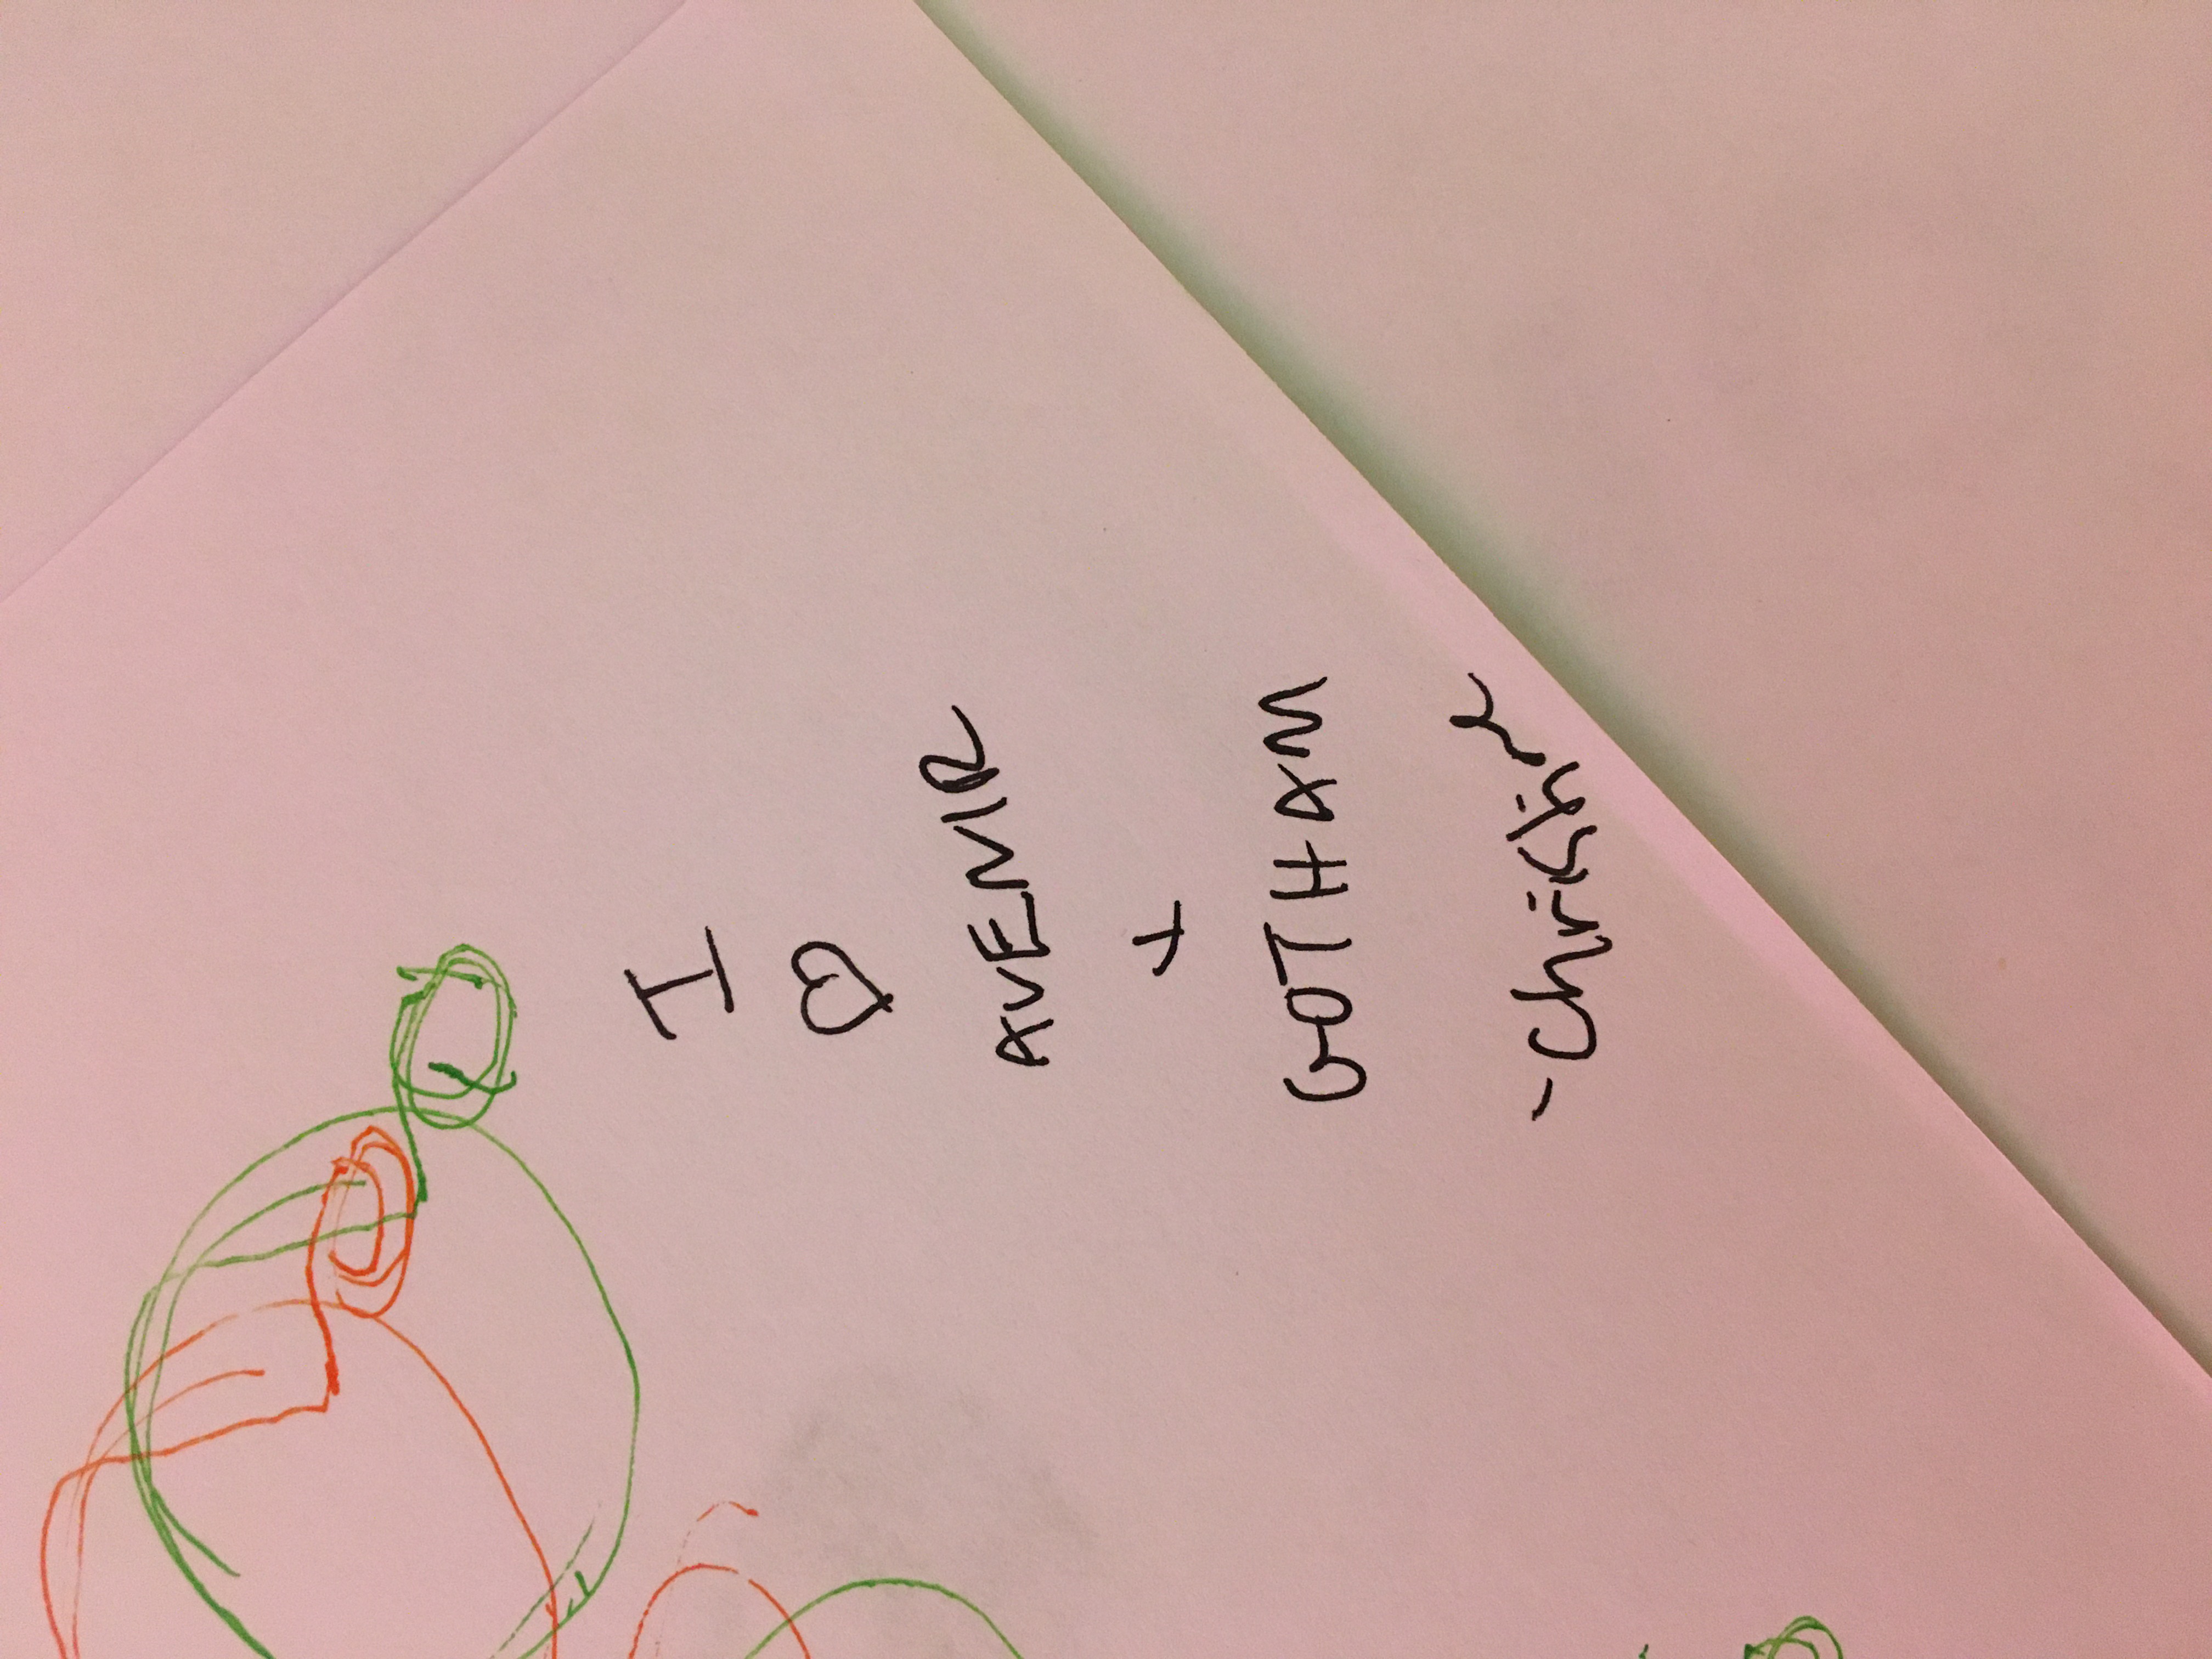 I
♡
AVENIR
+
GOTHAM
-Christine